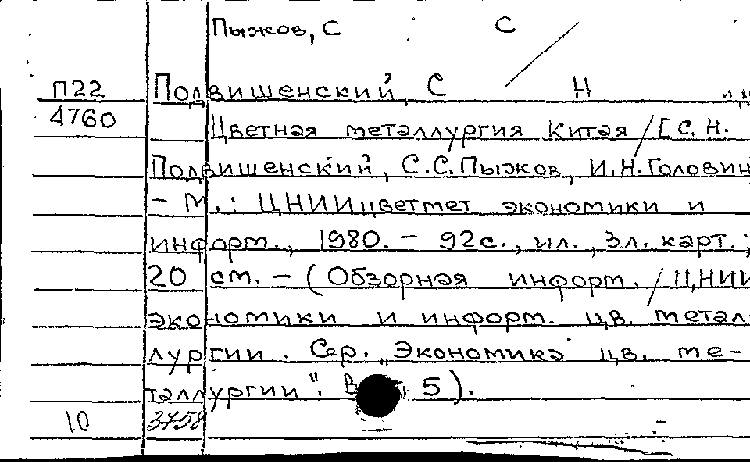 Пыжов, С С
П22 Подвишенский, С Н
4760 Цветная металлургия Китая / [С.Н.
Подвишенский, С.С. Пыжов, И.Н. Головин
– М.: ЦНИИцветмет экономики и
информ., 1980. – 92с., ил., 3л. карт.;
20 см. – (Обзорная информ. / ЦНИИ
экономики и информ. цв. метал-
лургии. Сер. "Экономика цв. ме-
таллургии"; В 5).
10 3758